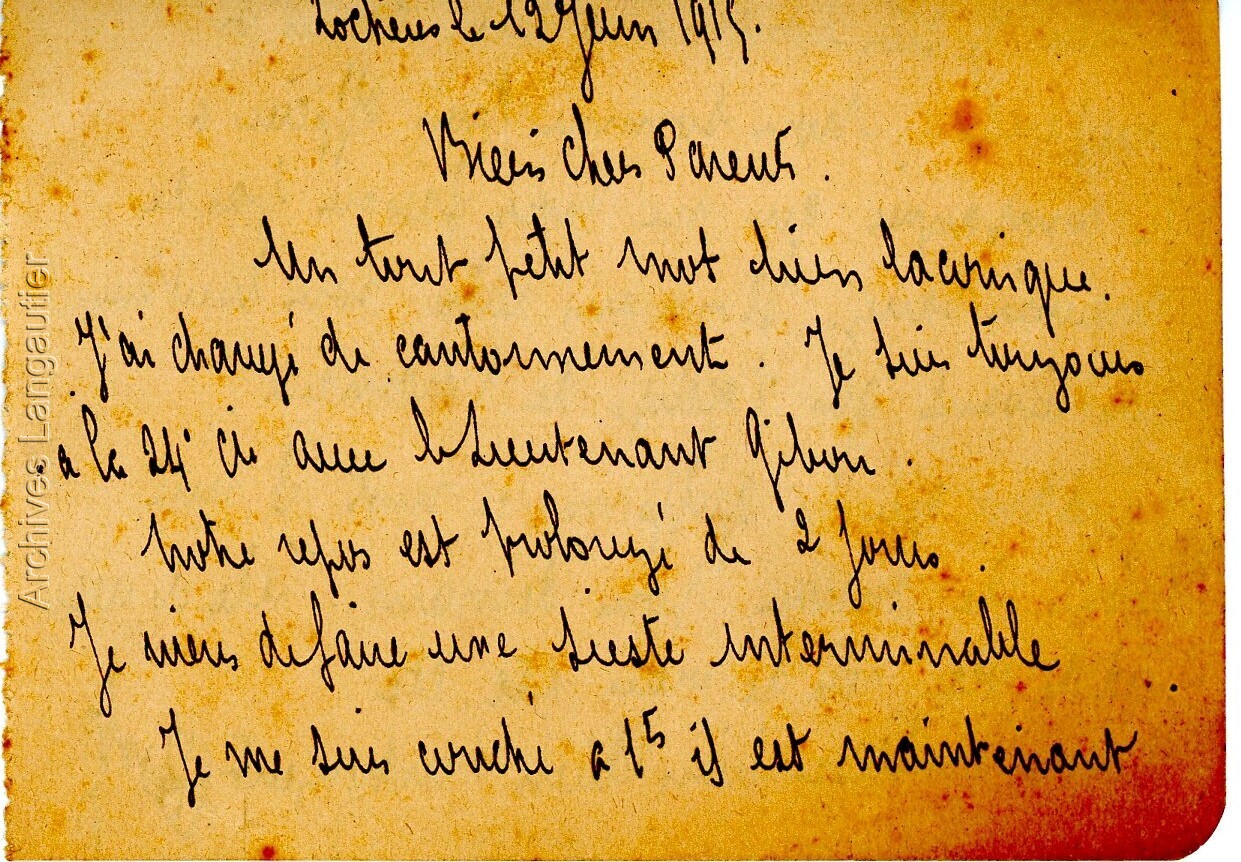 Lochères le 12 Juin 1915.
Biens chers Parents.
Un tout petit mot bien laconique.
J'ai changé de cantonnement. Je suis toujours
à la 24e Cie avec le Lieutenant Gibon.
Notre repos est prolongé de 2 jours.
Je viens de faire une sieste interminable
Je me suis couché a 1h il est maintenant
Archives Langautier